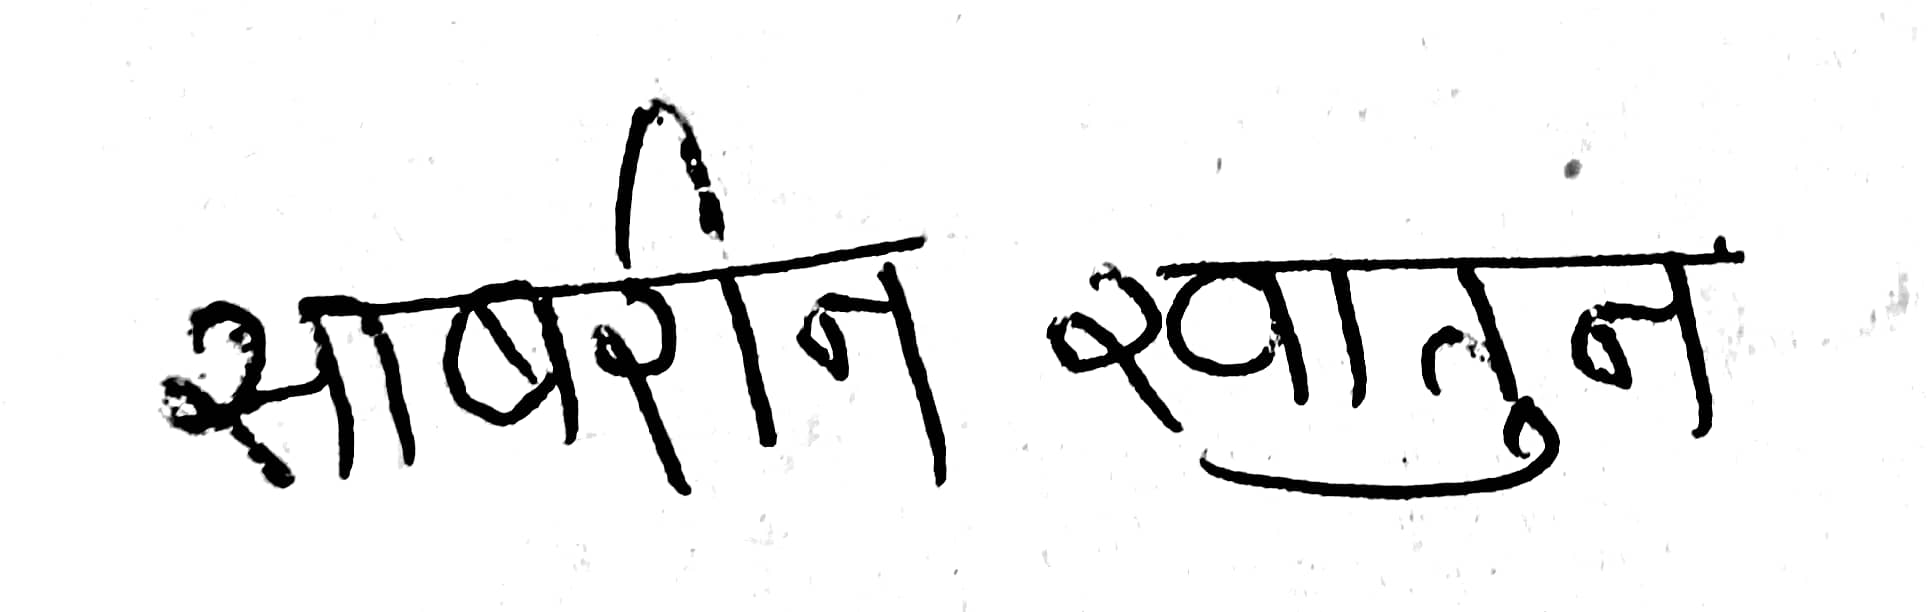 शाबरीन खातुन